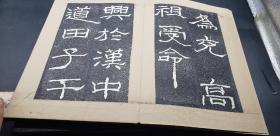 為充高
祖受命
興於漢中
道由子午